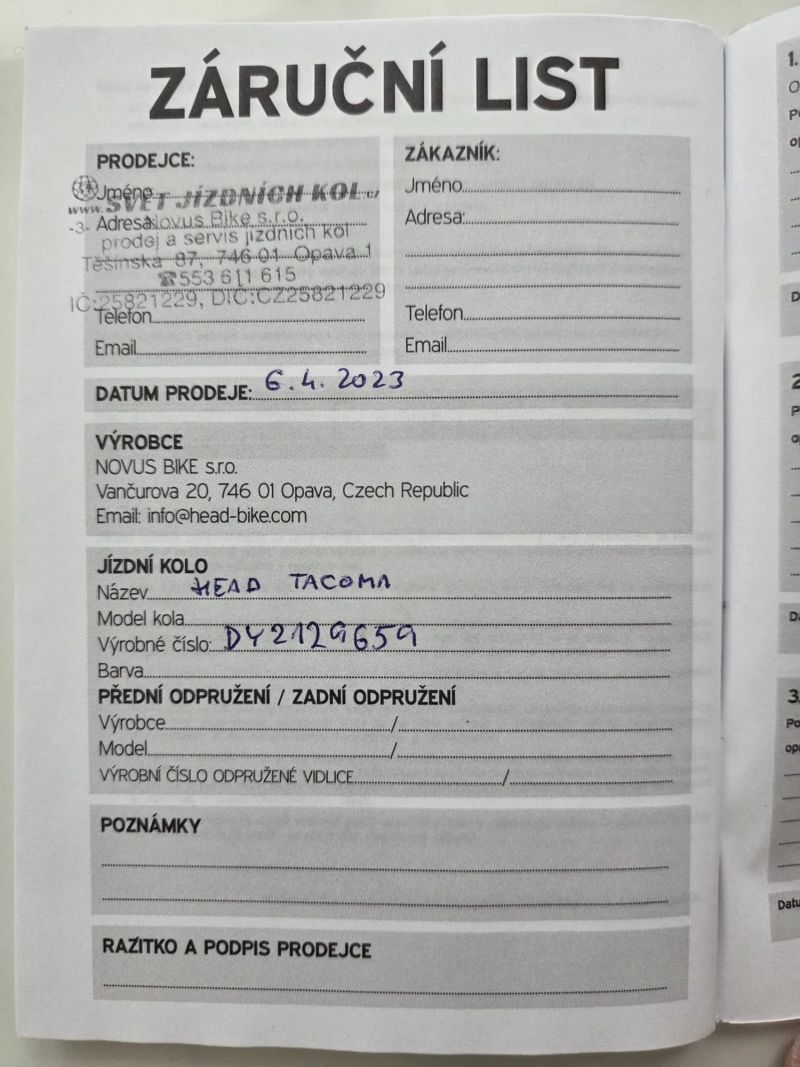 ZÁRUČNÍ LIST
PRODEJCE:
Jméno
www.SVĚT JÍZDNÍCH KOL.cz
Adresa:
-3- Novus Bike s.r.o.
prodej a servis jízdních kol
Těšínská 87, 746 01 Opava 1
☎553 611 615
IČ:25821229, DIČ:CZ25821229
Telefon
Email
ZÁKAZNÍK:
Jméno
Adresa:
Telefon
Email
DATUM PRODEJE: 6.4.2023
VÝROBCE
NOVUS BIKE s.r.o.
Vančurova 20, 746 01 Opava, Czech Republic
Email: info@head-bike.com
JÍZDNÍ KOLO
Název HEAD TACOMA
Model kola
Výrobné číslo: DY2129659
Barva
PŘEDNÍ ODPRUŽENÍ / ZADNÍ ODPRUŽENÍ
Výrobce /
Model /
VÝROBNÍ ČÍSLO ODPRUŽENÉ VIDLICE /
POZNÁMKY
RAZÍTKO A PODPIS PRODEJCE
1.
2
3.